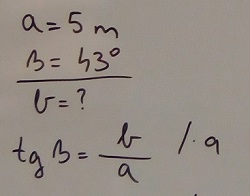 a = 5 m
β = 43°
b = ?
tg β = b/a /·a